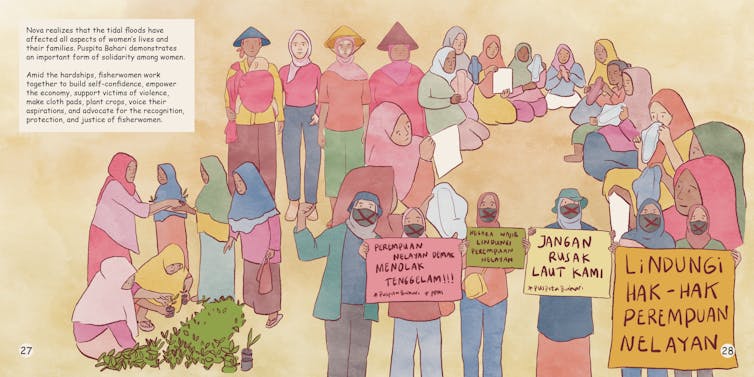 Nova realizes that the tidal floods have
affected all aspects of women's lives and
their families. Puspita Bahari demonstrates
an important form of solidarity among women.
Amid the hardships, fisherwomen work
together to build self-confidence, empower
the economy, support victims of violence,
make cloth pads, plant crops, voice their
aspirations, and advocate for the recognition,
protection, and justice of fisherwomen.
PEREMPUAN
NELAYAN DEMAK
MENOLAK
TENGGELAM!!!
#Puspita Bahari #PPNI
NEGARA WAJIB
LINDUNGI
PEREMPUAN
NELAYAN
JANGAN
RUSAK
LAUT KAMI
#PUSPITA Bahari
LINDUNGI
HAK-HAK
PEREMPUAN
NELAYAN
27
28